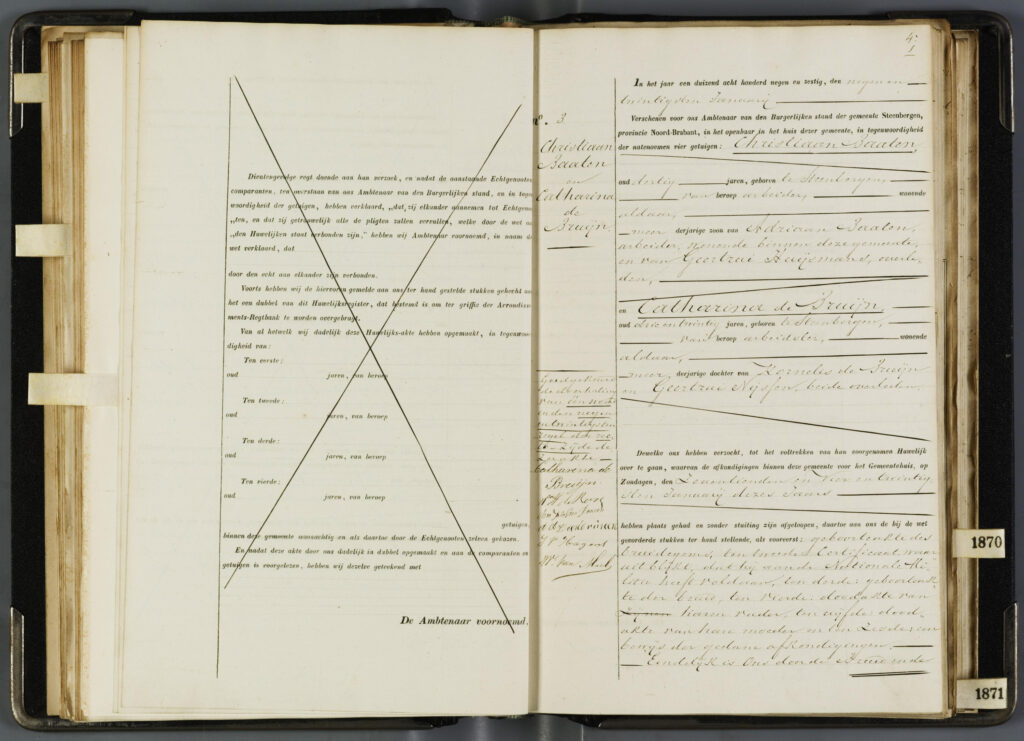 Dientengevolge regt doende aan hun verzoek, en nadat de aanstaande Echtgenooten
comparanten, ten overstaan van ons Ambtenaar van den Burgerlijken stand, en in tegen
woordigheid der getuigen, hebben verklaard, „dat zij elkander aannemen tot Echtgenoo
„ten, en dat zij getrouwelijk alle de pligten zullen vervullen, welke door de wet aan
„den Huwelijken staat verbonden zijn,” hebben wij Ambtenaar voornoemd, in naam der
wet verklaard, dat
door den echt aan elkander zijn verbonden.
Voorts hebben wij de hiervoren gemelde aan ons ter hand gestelde stukken gehecht aan
het een dubbel van dit Huwelijksregister, dat bestemd is om ter griffie der Arrondisse
ments-Regtbank te worden overgebragt.
Van al hetwelk wij dadelijk deze Huwelijks-akte hebben opgemaakt, in tegenwoor
digheid van:
Ten eerste:
oud jaren, van beroep
Ten tweede:
oud jaren, van beroep
Ten derde:
oud jaren, van beroep
Ten vierde:
oud jaren, van beroep
getuigen,
binnen deze gemeente woonachtig en als daartoe door de Echtgenooten zelven gekozen.
En nadat deze akte door ons dadelijk in dubbel opgemaakt en aan de comparanten en
getuigen is voorgelezen, hebben wij dezelve geteekend met
De Ambtenaar voornoemd.
N. 3
Christiaan
Baaton
en
Catharina
de
Bruijn.
Catharina de
Bruijn
4
1
In het jaar een duizend acht honderd negen en zestig, den negen en
twintigsten Januarij
Verschenen voor ons Ambtenaar van den Burgerlijken stand der gemeente Steenbergen,
provincie Noord-Brabant, in het openbaar in het huis dezer gemeente, in tegenwoordigheid
der natenoemen vier getuigen: Christiaan Baaton,
oud dertig jaren, geboren te Steenbergen,
van beroep arbeider, wonende
aldaar,
meer derjarige zoon van Adriaan Baaton,
arbeider, wonende binnen deze gemeente,
en van Geertrui Huijsmans, overle
den,
en Catharina de Bruijn,
oud drie en twintig jaren, geboren te Steenbergen,
van beroep arbeidster, wonende
aldaar,
meer, derjarige dochter van Kornelis de Bruijn
en Geertrui Nijssen, beide overleden.
Dewelke ons hebben verzocht, tot het voltrekken van hun voorgenomen Huwelijk
over te gaan, waarvan de afkondigingen binnen deze gemeente voor het Gemeentehuis, op
Zondagen, den Zeventienden en Vier en twintig
sten Januarij dezes Jaars
hebben plaats gehad en zonder stuiting zijn afgeloopen, daartoe aan ons de bij de wet
gevorderde stukken ter hand stellende, als vooreerst: geboorteakte des
bruidegoms, ten tweede: Certificaat waar
uit blijkt, dat hij aan de Nationale Mi
litie heeft voldaan, ten derde: geboorteak
te der bruid, ten vierde: doodakte van
haren vader, ten vijfde: dood
akte van hare moeder en ten Zesde: een
bewijs der gedane afkondigingen.
Eindelijk is Ons door de Bruid
1870
1871